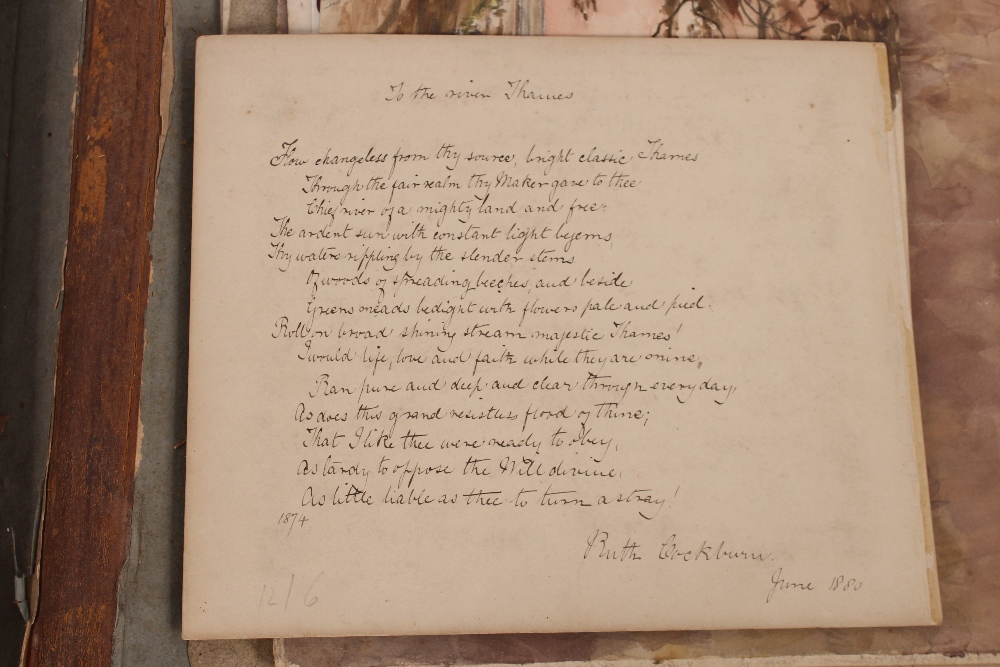 To the river Thames
Flow changeless from thy source, bright classic Thames
Through the fair realm thy Maker gave to thee
Chief river of a mighty land and free:
The ardent sun with constant light begems
Thy waters rippling by the slender stems
Of woods of spreading beeches, and beside
Greens meads bedight with flowers pale and pied.
Roll on broad shining stream majestic Thames!
I would life, love and faith while they are mine,
Ran pure and deep and clear through every day,
As does this grand resistless flood of thine;
That I like thee were ready to obey,
As tardy to oppose the Will divine,
As little liable as thee to turn a stray!
1874
Ruth Cockburn.
June 1880
12/6